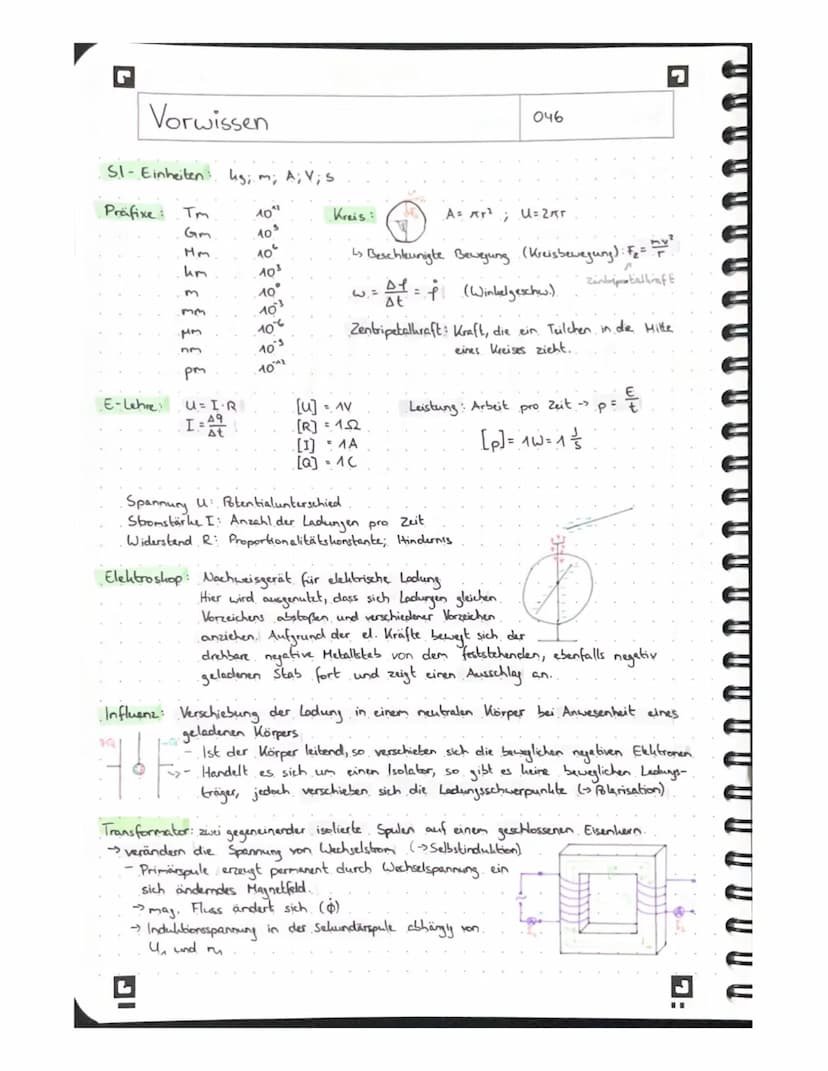 Vorwissen
046
S.I-Einheiten: kg; m; A; V; s
Präfixe: Tm 10¹²
Gm 10⁹
Mm 10⁶
km 10³
m 10⁰
mm 10⁻³
μm 10⁻⁶
nm 10⁻⁹
pm 10⁻¹²
Kreis: A = πr² ; U = 2πr
↳ Beschleunigte Bewegung (Kreisbewegung): F_z = mv²/r
Zentripetalkraft
ω = Δφ/Δt = φ̇ (Winkelgeschw.)
Zentripetalkraft: Kraft, die ein Teilchen in die Mitte
eines Kreises zieht.
E-Lehre: U = I · R
I = Δq/Δt
[U] = 1V
[R] = 1Ω
[I] = 1A
[Q] = 1C
Leistung: Arbeit pro Zeit -> p = E/t
[p] = 1W = 1 J/s
Spannung U: Potentialunterschied
Stromstärke I: Anzahl der Ladungen pro Zeit
Widerstand R: Proportionalitätskonstante; Hindernis
Elektroskop: Nachweisgerät für elektrische Ladung
Hier wird ausgenutzt, dass sich Ladungen gleichen
Vorzeichens abstoßen und verschiedener Vorzeichen
anziehen. Aufgrund der el. Kräfte bewegt sich der
drehbare negative Metallstab von dem feststehenden, ebenfalls negativ
geladenen Stab fort und zeigt einen Ausschlag an.
Influenz: Verschiebung der Ladung in einem neutralen Körper bei Anwesenheit eines
geladenen Körpers
- Ist der Körper leitend, so verschieben sich die beweglichen negativen Elektronen
-> - Handelt es sich um einen Isolator, so gibt es keine beweglichen Ladungs-
träger, jedoch verschieben sich die Ladungsschwerpunkte (-> Polarisation)
Transformator: zwei gegeneinander isolierte Spulen auf einem geschlossenen Eisenkern.
-> verändern die Spannung von Wechselstrom (-> Selbstinduktion)
- Primärspule erzeugt permanent durch Wechselspannung ein
sich änderndes Magnetfeld.
-> mag. Fluss ändert sich (φ̇)
-> Induktionsspannung in der Sekundärspule abhängig von
U₁ und n₁